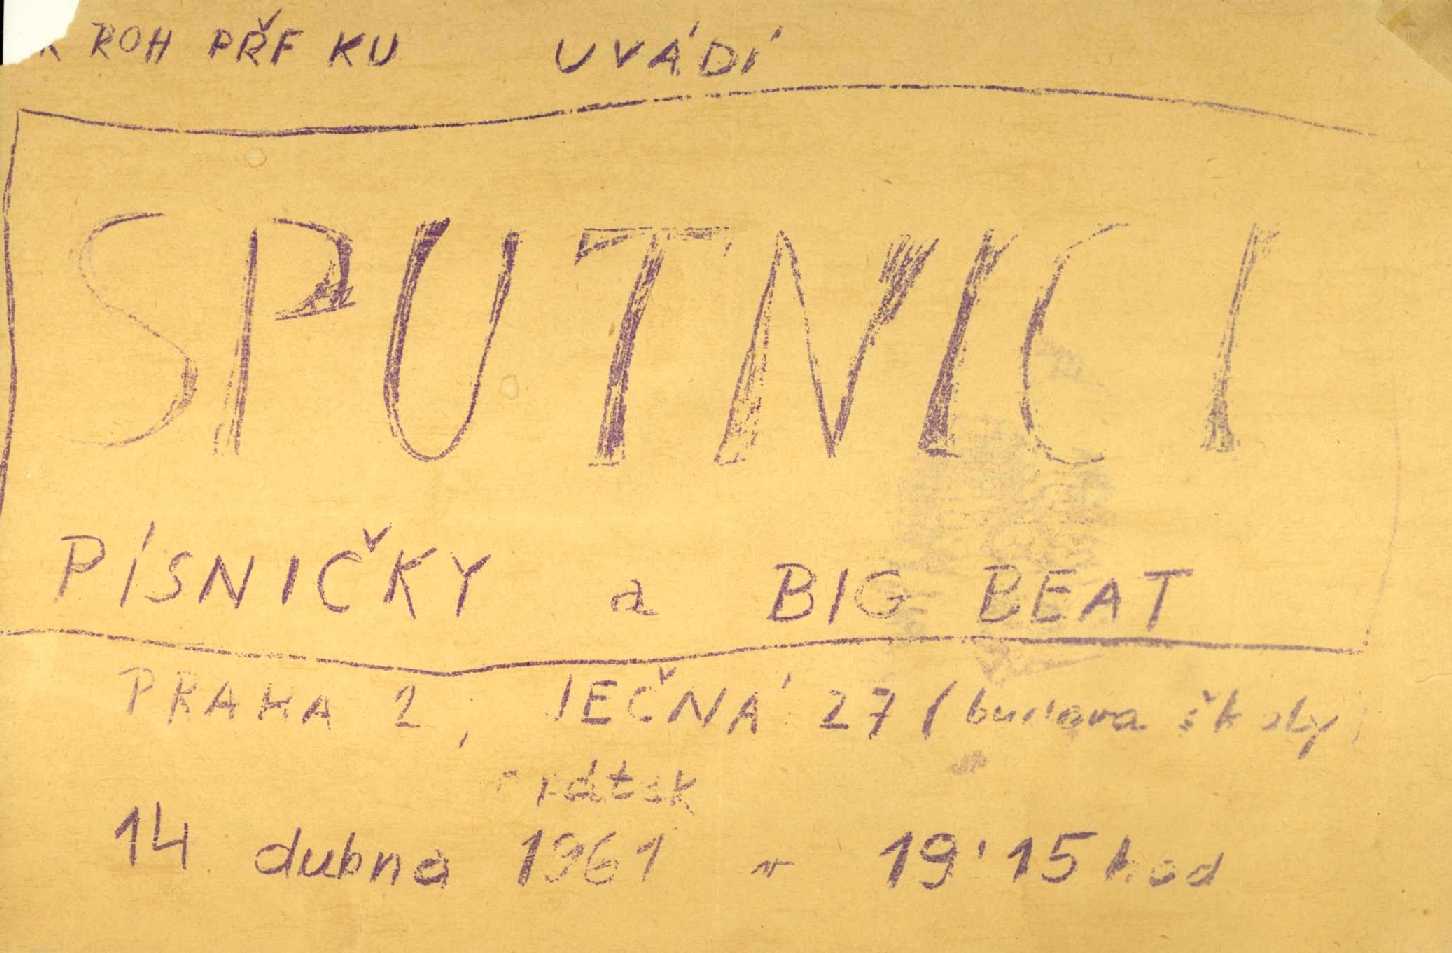 ROH PŘF KU UVÁDÍ
SPUTNICI
PÍSNIČKY a BIG BEAT
PRAHA 2, JEČNÁ 27 (budova školy)
v pátek
14 dubna 1961 v 19'15 hod